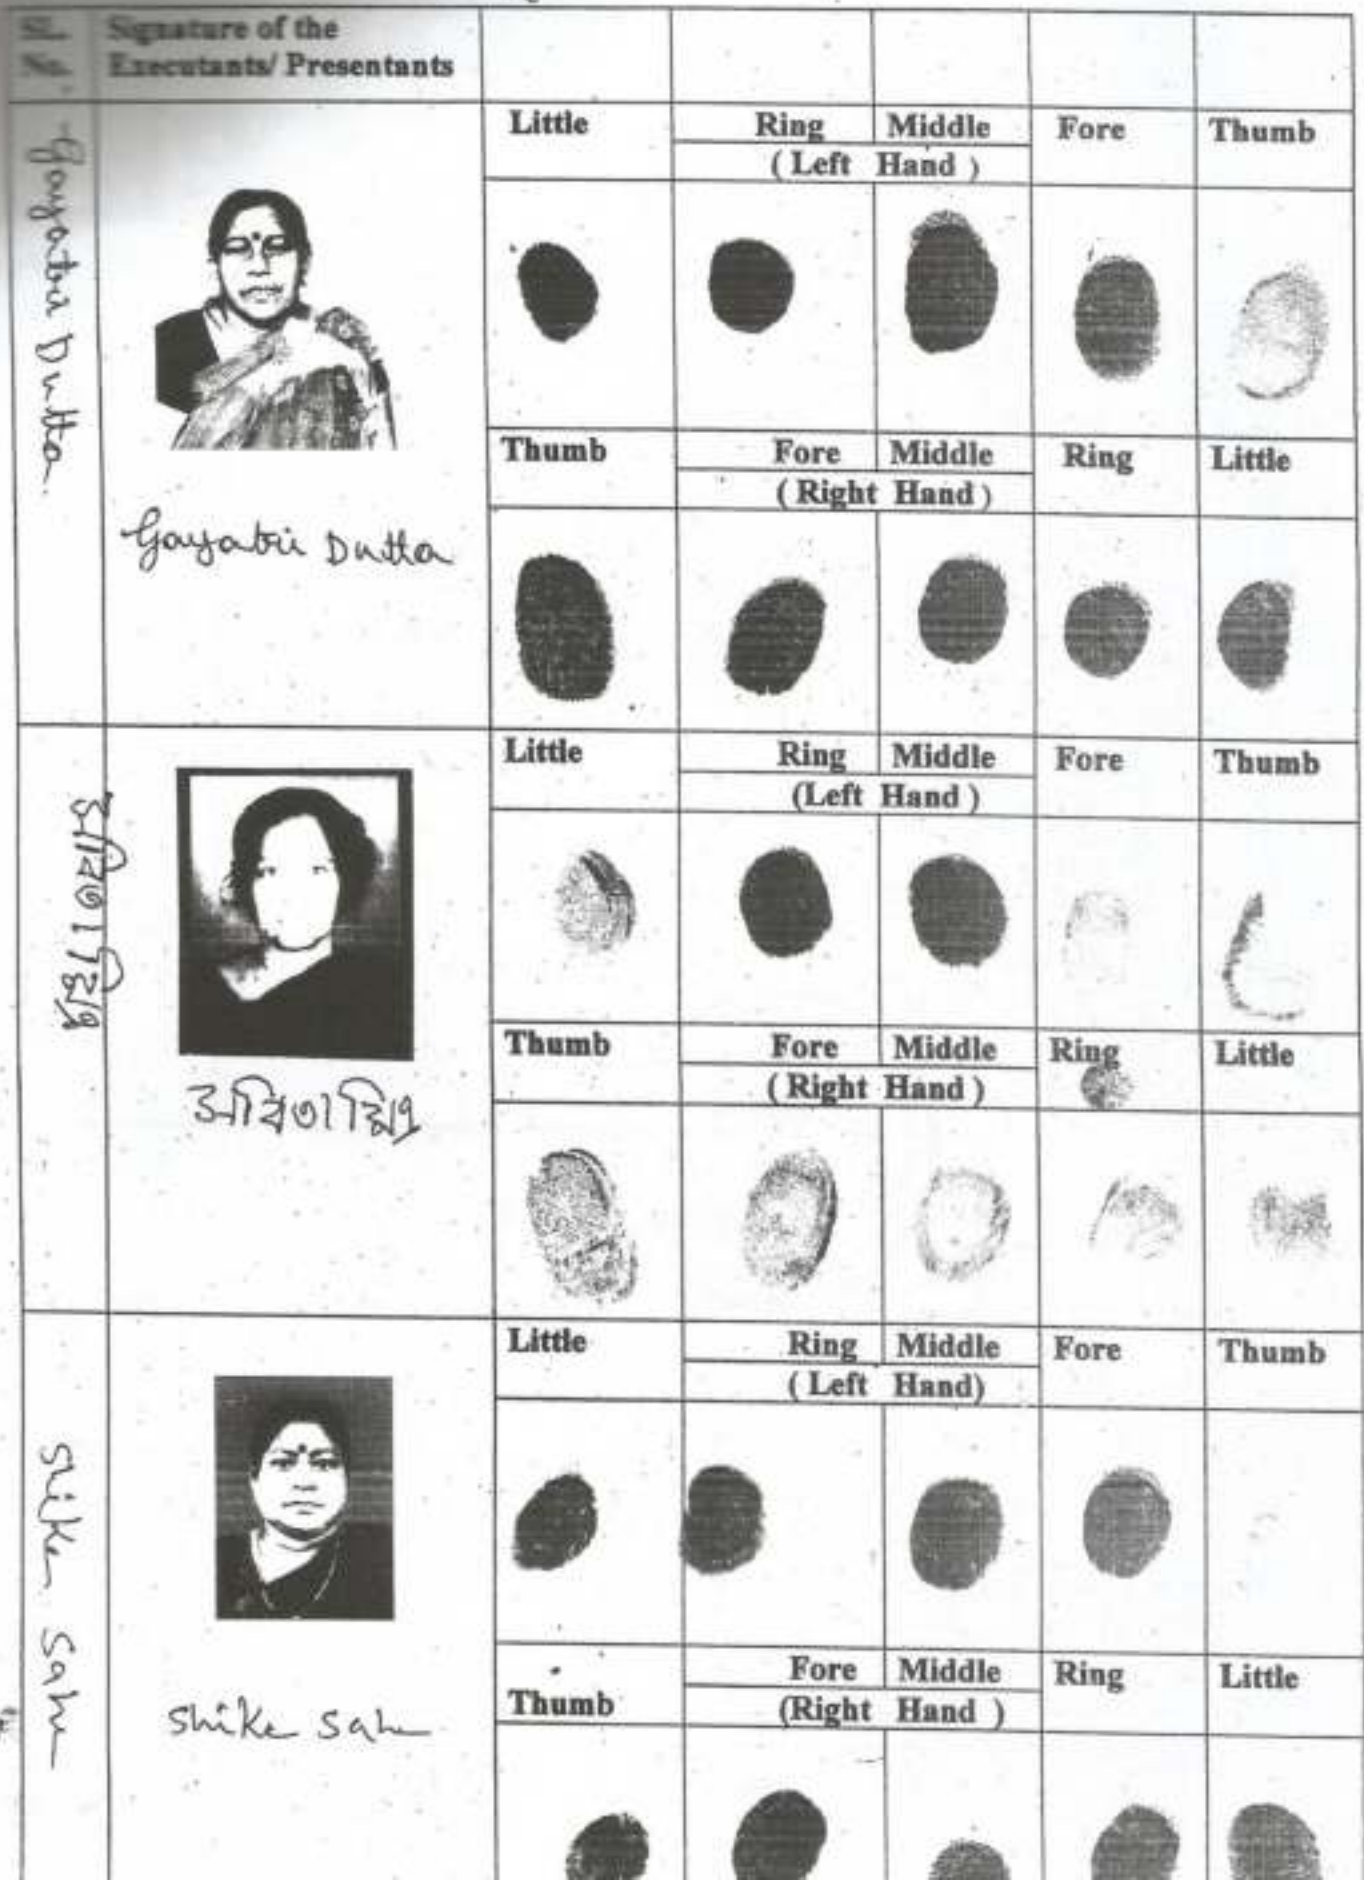 SL. Signature of the
No. Executants/ Presentants
Gayatri Dutta
Little Ring Middle Fore Thumb
( Left Hand )
Thumb Fore Middle Ring Little
( Right Hand )
Gayatri Dutta
Little Ring Middle Fore Thumb
(Left Hand )
Thumb Fore Middle Ring Little
( Right Hand )
Shika Saha
Little Ring Middle Fore Thumb
( Left Hand)
Thumb Fore Middle Ring Little
(Right Hand )
Shika Saha